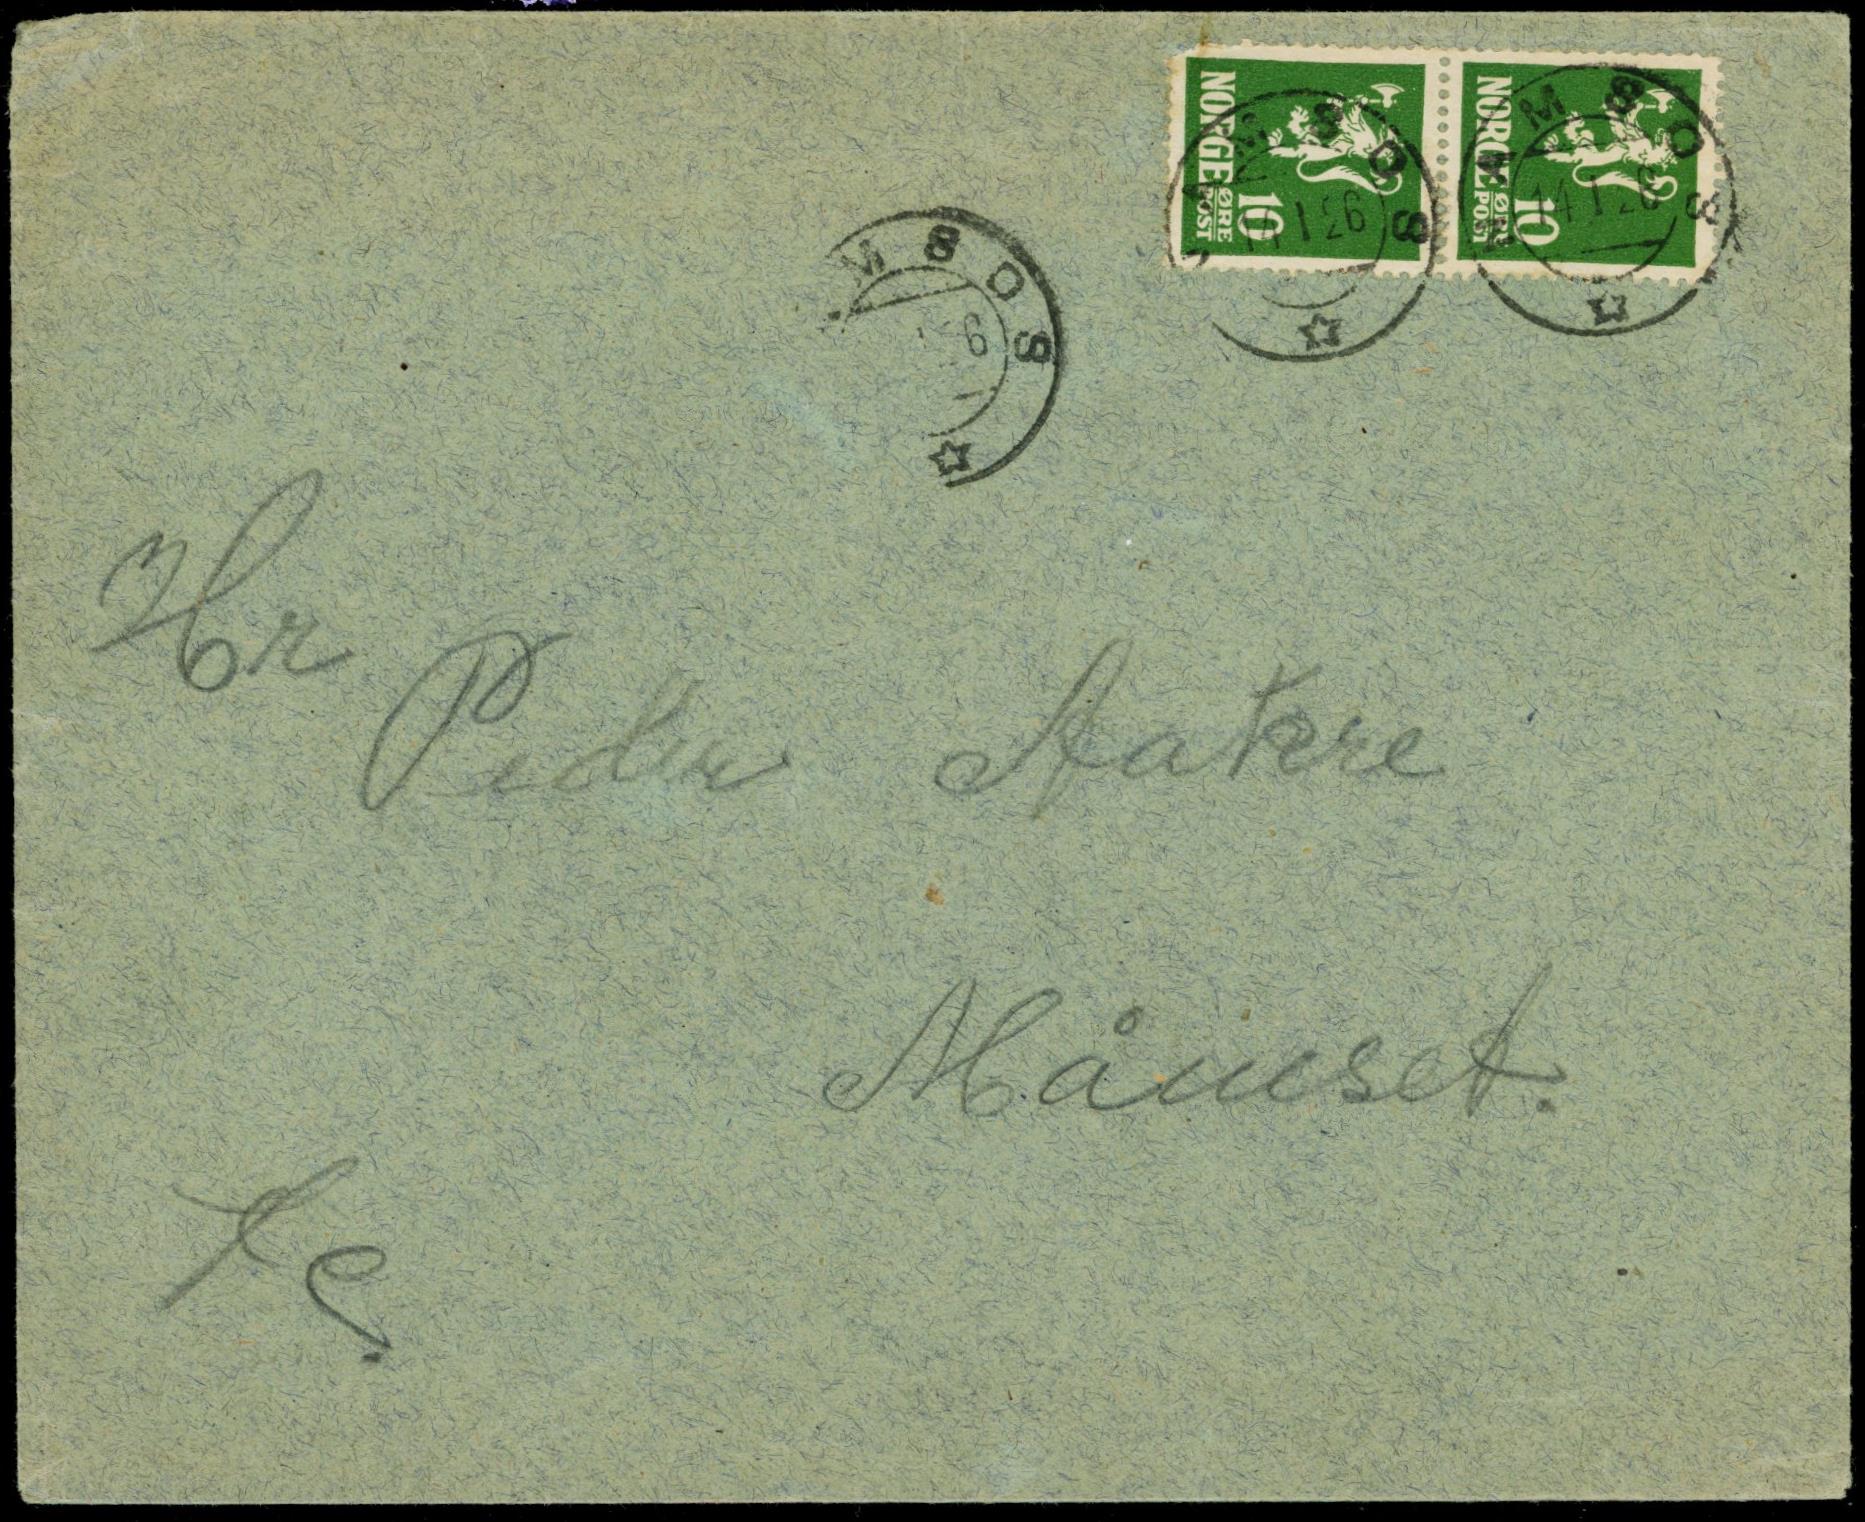 NORGE 10 ØRE POST
NORGE 10 ØRE POST
NAMSOS
14 I 26
NAMSOS
14 I 26
MSOS
6
Hr
Peder Aakre
Måmset.